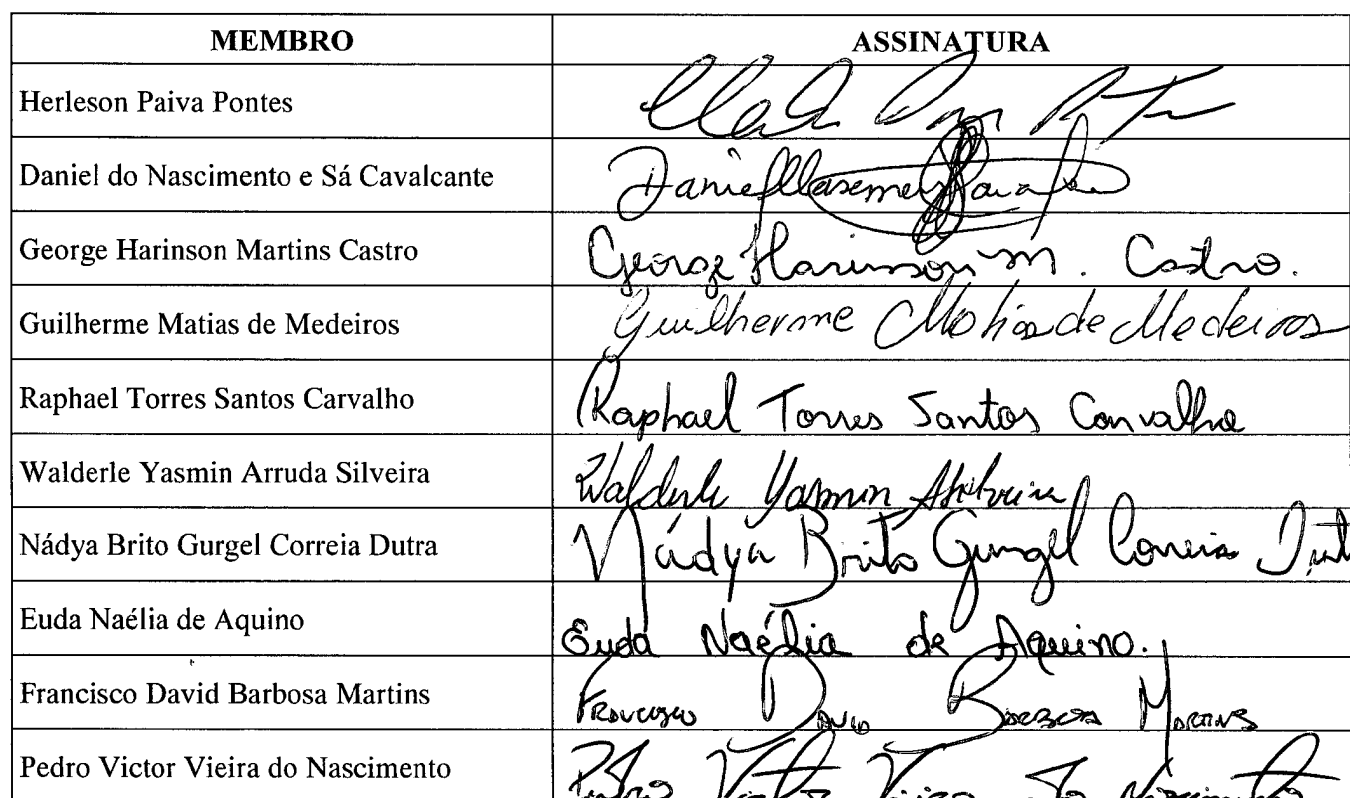 MEMBRO ASSINATURA
Herleson Paiva Pontes
Daniel do Nascimento e Sá Cavalcante Daniel
George Harinson Martins Castro George Harinson M. Castro.
Guilherme Matias de Medeiros Guilherme Matias de Medeiros
Raphael Torres Santos Carvalho Raphael Torres Santos Carvalho
Walderle Yasmin Arruda Silveira Walderle Yasmin ASilveira
Nádya Brito Gurgel Correia Dutra Nádya Brito Gurgel Correia Dut
Euda Naélia de Aquino Euda Naélia de Aquino.
Francisco David Barbosa Martins Francisco David Barbosa Martins
Pedro Victor Vieira do Nascimento Pedro Victor Vieira do Nascimento